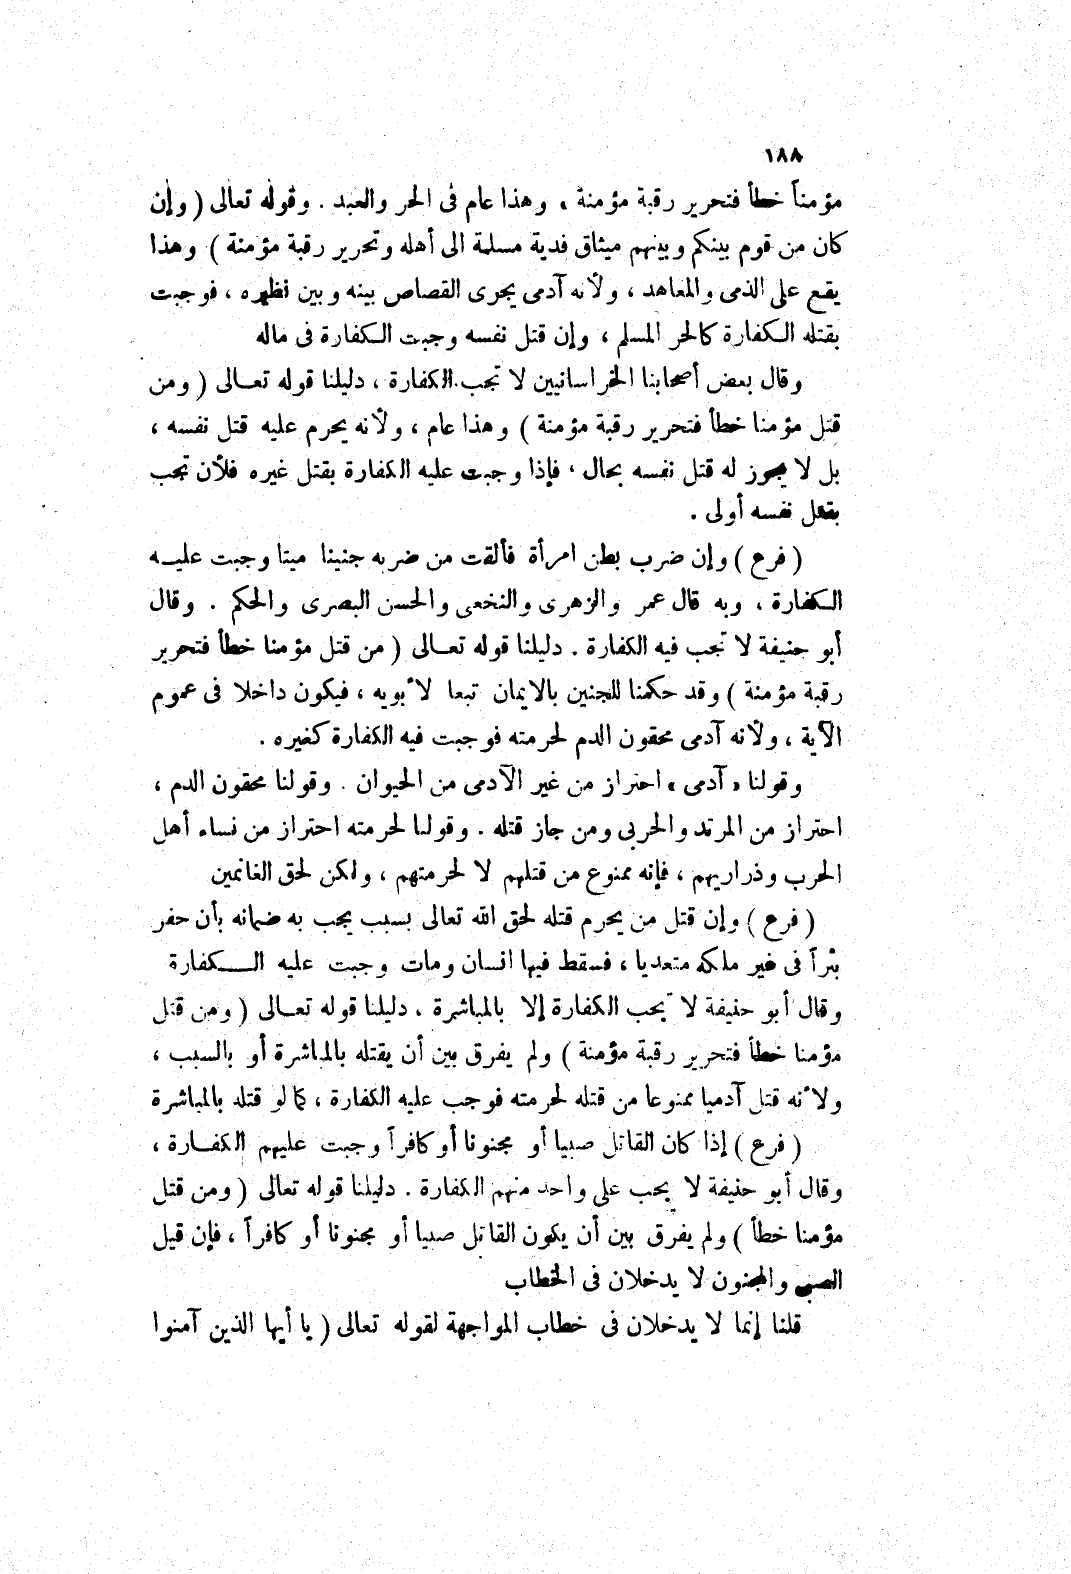 ١٨٨
مؤمناً خطأ فتحرير رقبة مؤمنة ، وهذا عام فى الحر والعبد . وقوله تعالى ( وإن
كان من قوم بينكم وبينهم ميثاق فدية مسلمة الى أهله وتحرير رقبة مؤمنة ) وهذا
يقع على الذمى والمعاهد ، ولأنه آدمى يجرى القصاص بينه وبين نظيره ، فوجبت
بقتله الكفارة كالحر المسلم ، وإن قتل نفسه وجبت الكفارة فى ماله
وقال بعض أصحابنا الخراسانيين لا تجب الكفارة ، دليلنا قوله تعالى ( ومن
قتل مؤمنا خطأ فتحرير رقبة مؤمنة ) وهذا عام ، ولأنه يحرم عليه قتل نفسه ،
بل لا يجوز له قتل نفسه بحال ، فإذا وجبت عليه الكفارة بقتل غيره فلأن تجب
بقتل نفسه أولى .
( فرع ) وإن ضرب بطن امرأة فألقت من ضربه جنينا ميتا وجبت عليه
الكفارة ، وبه قال عمر والزهرى والنخعى والحسن البصرى والحكم . وقال
أبو حنيفة لا تجب فيه الكفارة . دليلنا قوله تعالى ( من قتل مؤمنا خطأ فتحرير
رقبة مؤمنة ) وقد حكمنا للجنين بالايمان تبعا لأبويه ، فيكون داخلا فى عموم
الآية ، ولأنه آدمى محقون الدم لحرمته فوجبت فيه الكفارة كغيره .
وقولنا « آدمى » احتراز من غير الآدمى من الحيوان . وقولنا محقون الدم ،
احتراز من المرتد والحربى ومن جاز قتله . وقولنا لحرمته احتراز من نساء أهل
الحرب وذراريهم ، فإنه ممنوع من قتلهم لا لحرمتهم ، ولكن لحق الغانمين
( فرع ) وإن قتل من يحرم قتله لحق الله تعالى بسبب يجب به ضمانه بأن حفر
بئراً فى غير ملكه متعديا ، فسقط فيها انسان ومات وجبت عليه الكفارة
وقال أبو حنيفة لا تجب الكفارة إلا بالمباشرة ، دليلنا قوله تعالى ( ومن قتل
مؤمنا خطأ فتحرير رقبة مؤمنة ) ولم يفرق بين أن يقتله بالمباشرة أو بالسبب ،
ولأنه قتل آدميا ممنوعا من قتله لحرمته فوجب عليه الكفارة ، كما لو قتله بالمباشرة
( فرع ) إذا كان القاتل صبيا أو مجنونا أو كافراً وجبت عليهم الكفارة ،
وقال أبو حنيفة لا يجب على واحد منهم الكفارة . دليلنا قوله تعالى ( ومن قتل
مؤمنا خطأ ) ولم يفرق بين أن يكون القاتل صبيا أو مجنونا أو كافراً ، فإن قيل
الصبى والمجنون لا يدخلان فى الخطاب
قلنا إنما لا يدخلان فى خطاب المواجهة لقوله تعالى ( يا أيها الذين آمنوا